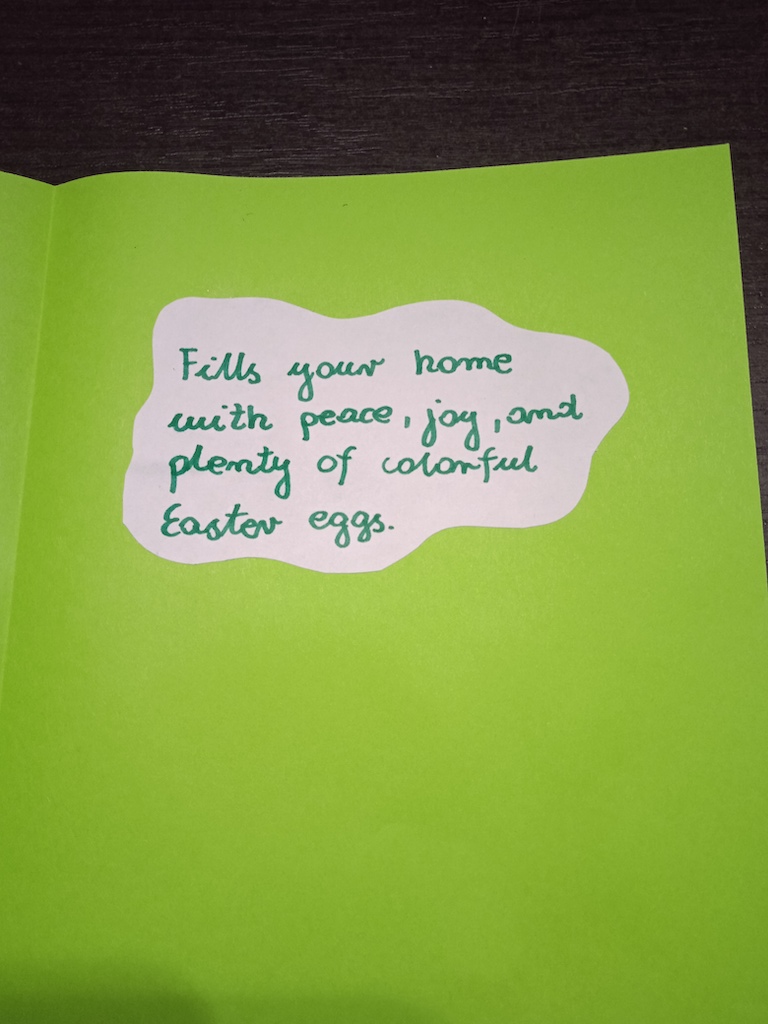 Fills your home
with peace, joy, and
plenty of colorful
Easter eggs.